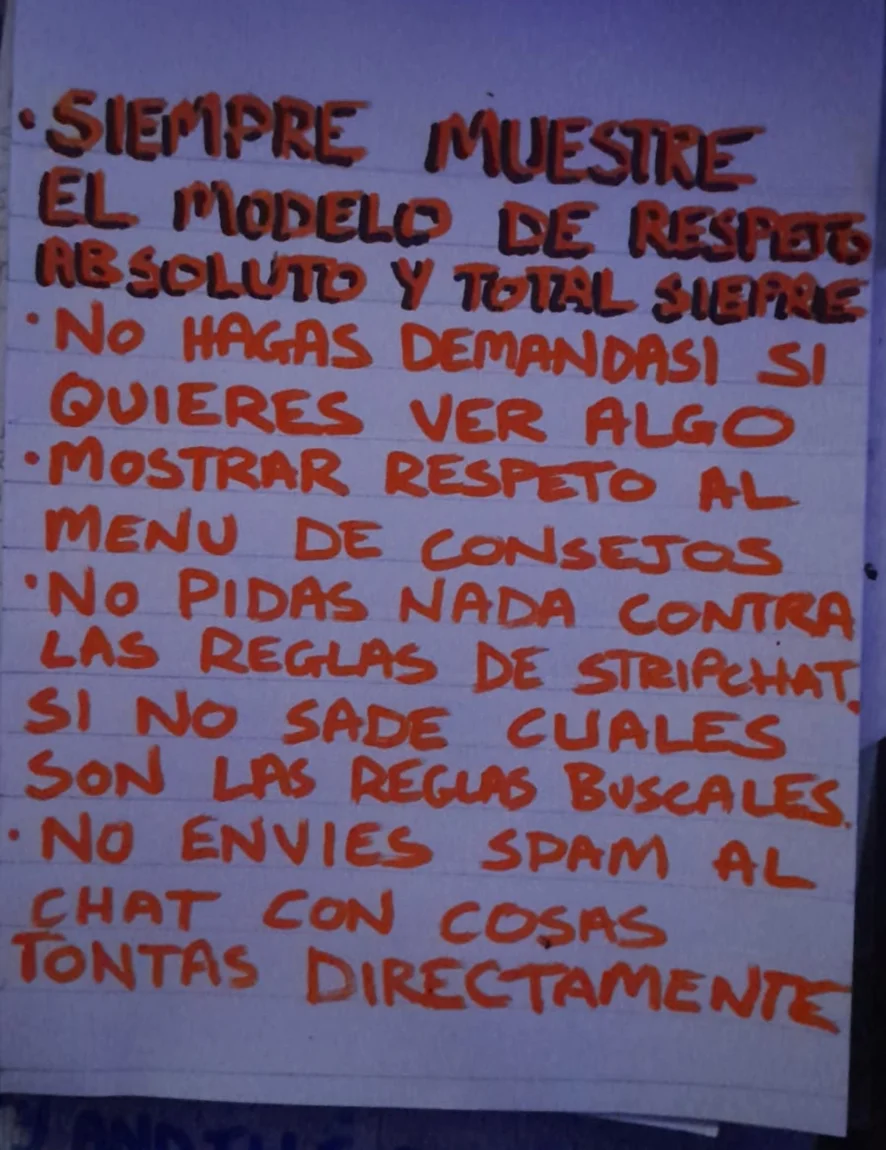 • SIEMPRE MUESTRE
EL MODELO DE RESPETO
ABSOLUTO Y TOTAL SIEPRE
• NO HAGAS DEMANDASI SI
QUIERES VER ALGO
• MOSTRAR RESPETO AL
MENU DE CONSEJOS
• NO PIDAS NADA CONTRA
LAS REGLAS DE STRIPCHAT.
SI NO SADE CUALES
SON LAS REGLAS BUSCALES.
• NO ENVIES SPAM AL
CHAT CON COSAS
TONTAS DIRECTAMENTE